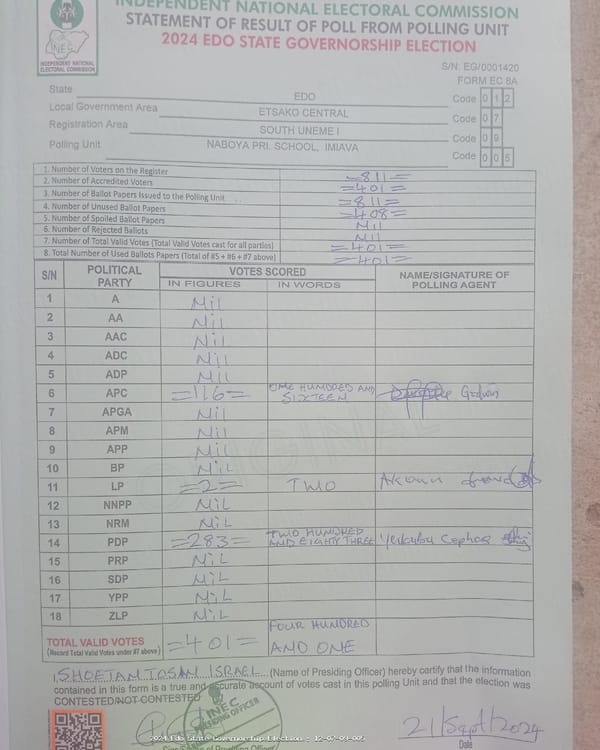 INDEPENDENT NATIONAL ELECTORAL COMMISSION
STATEMENT OF RESULT OF POLL FROM POLLING UNIT
2024 EDO STATE GOVERNORSHIP ELECTION
INEC
INDEPENDENT NATIONAL
ELECTORAL COMMISSION
S/N: EG/0001420
FORM EC 8A
State EDO Code 0 1 2
Local Government Area ETSAKO CENTRAL Code 0 7
Registration Area SOUTH UNEME I Code 0 9
Polling Unit NABOYA PRI. SCHOOL, IMIAVA Code 0 0 5
1. Number of Voters on the Register =811=
2. Number of Accredited Voters =401=
3. Number of Ballot Papers Issued to the Polling Unit =811=
4. Number of Unused Ballot Papers =408=
5. Number of Spoiled Ballot Papers Nil
6. Number of Rejected Ballots Nil
7. Number of Total Valid Votes (Total Valid Votes cast for all parties) =401=
8. Total Number of Used Ballots Papers (Total of #5 + #6 + #7 above) =401=
S/N POLITICAL PARTY VOTES SCORED NAME/SIGNATURE OF POLLING AGENT
IN FIGURES IN WORDS
1 A Nil
2 AA Nil
3 AAC Nil
4 ADC Nil
5 ADP Nil
6 APC =116= ONE HUNDRED AND SIXTEEN Godwin
7 APGA Nil
8 APM Nil
9 APP Nil
10 BP NiL
11 LP =2= TWO
12 NNPP NiL
13 NRM NiL
14 PDP =283= TWO HUNDRED AND EIGHTY THREE Cephas
15 PRP NiL
16 SDP NiL
17 YPP NiL
18 ZLP NiL
TOTAL VALID VOTES =401= FOUR HUNDRED AND ONE
(Record Total Valid Votes under #7 above)
I, SHOETAN TOSAN ISRAEL (Name of Presiding Officer) hereby certify that the information
contained in this form is a true and accurate account of votes cast in this polling Unit and that the election was
CONTESTED/NOT CONTESTED
INEC
PRESIDING OFFICER
21/Sept/2024
Date
2024 Edo State Governorship Election - 12-07-09-005